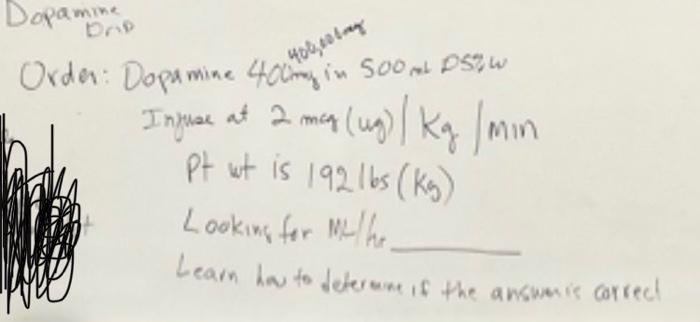 Dopamine
Drip
400,000mcg
Order: Dopamine 400mg in 500 mL D5%W
Infuse at 2 mcg (ug) / Kg / min
Pt wt is 192 lbs (Kg)
Looking for ML/hr ________
Learn how to determine if the answer is correct